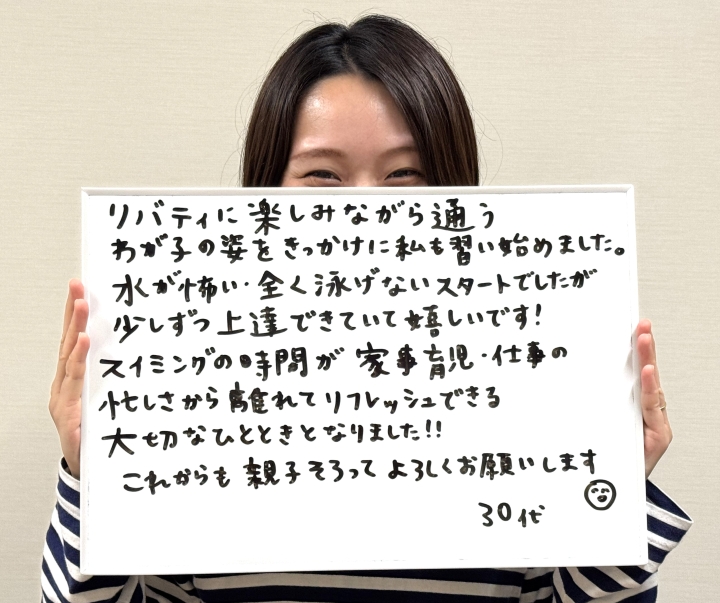 リバティに楽しみながら通う
わが子の姿をきっかけに私も習い始めました。
水が怖い・全く泳げないスタートでしたが
少しずつ上達できていて嬉しいです!
スイミングの時間が家事育児・仕事の
忙しさから離れてリフレッシュできる
大切なひとときとなりました!!
これからも親子そろってよろしくお願いします
30代